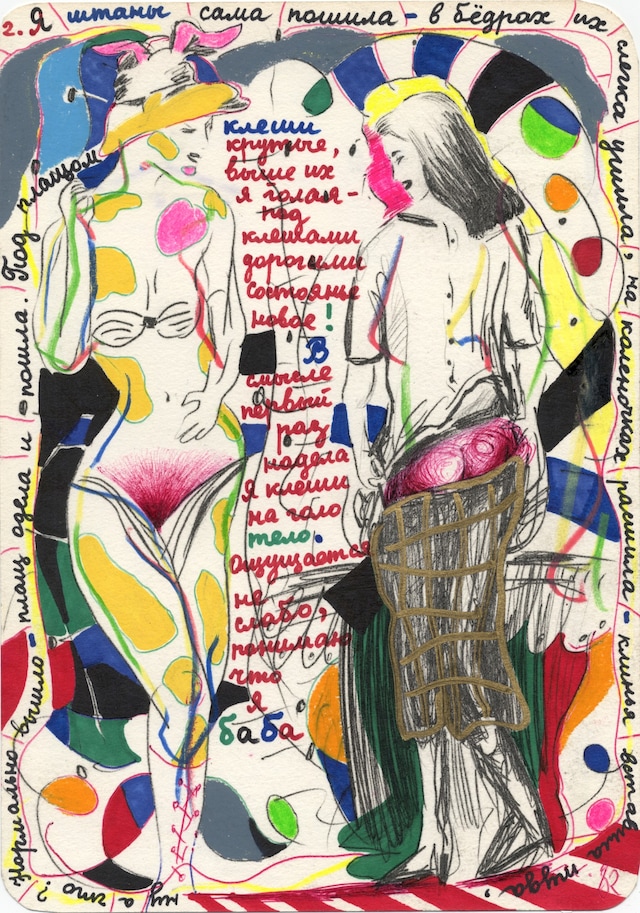 2. Я штаны сама пошила – в бёдрах их
слегка ушила, на коленочках расшила – клинья
туда,
ну а что?
Нормально вышло – плащ одела и пошла. Под плащом
клеши
крутые,
выше их
я голая –
под
клешами
дорогими
состоянье
новое!
В
смысле
первый
раз
надела
я клеши
на голо
тело.
Ощущается
не
слабо,
понимаю
что
я
баба